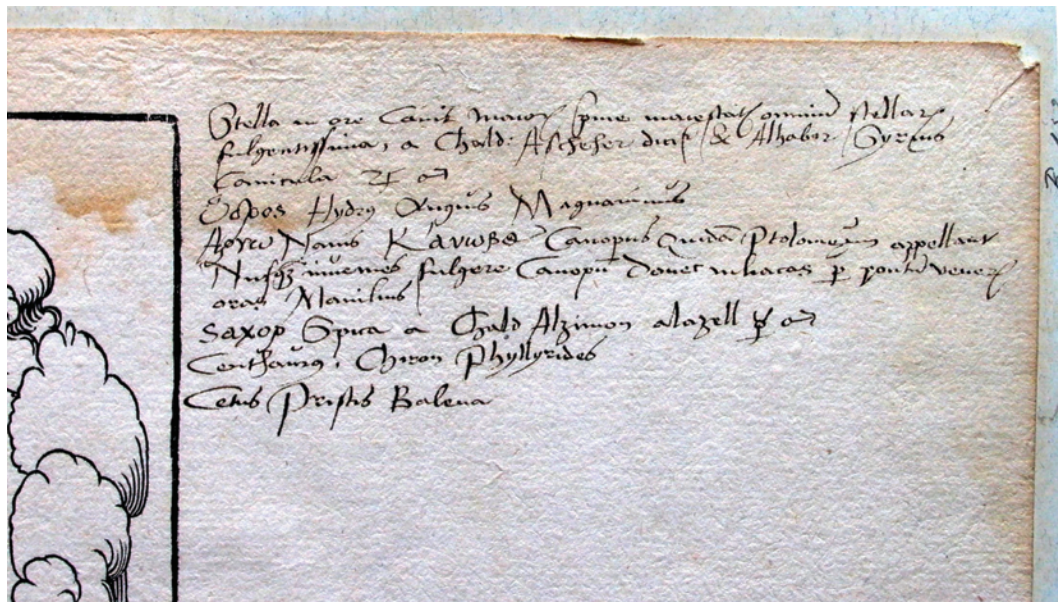 Stella in ore Canis maior[is] sp[em] maiestat[is] omniu[m] stellar[um]
fulgentissima, a Chald: Ascheher dicit[ur] & Alhabor Syrius
Canicula ♃ ♂
Hydrus Anguis Magnanimus
Αργω Navis Κανωβος Canopus Quidā Ptolomeum appellant
Nusq[uam] invenies fulgere Canopū donec niliacas p[er] pontū vener[is]
oras Manilius
Spica a Chald Alzimon alazell ♀ ♂
Centhaurus, Chiron Phyllyrides
Cetus Pristis Balena